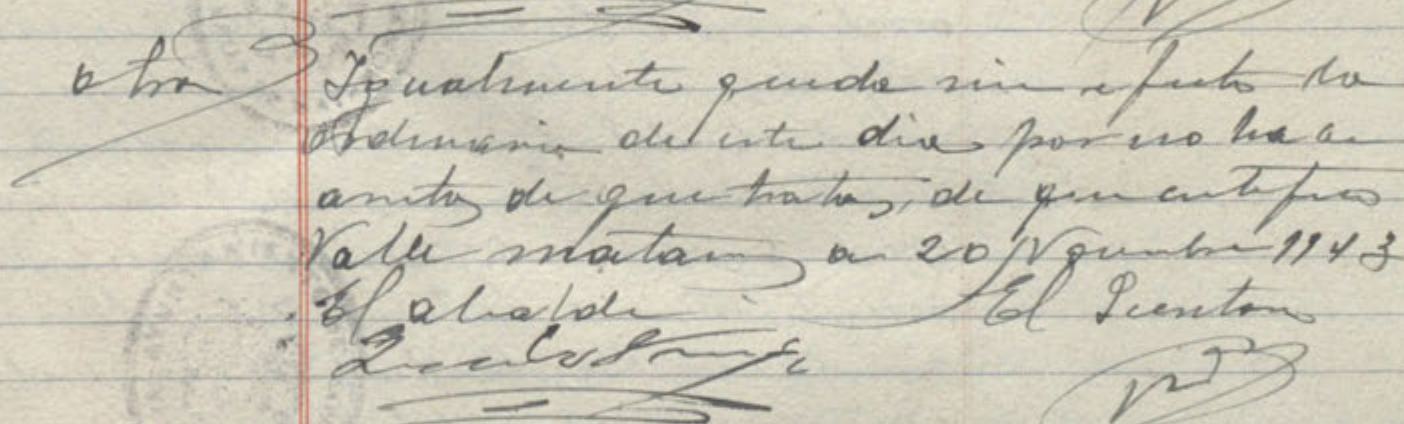 otra
Igualmente queda sin efecto la
ordinaria de este dia por no haber
asuntos de que tratar, de que certifico
Valle matamz a 20 Noviembre 1943
El alcalde El Secretario